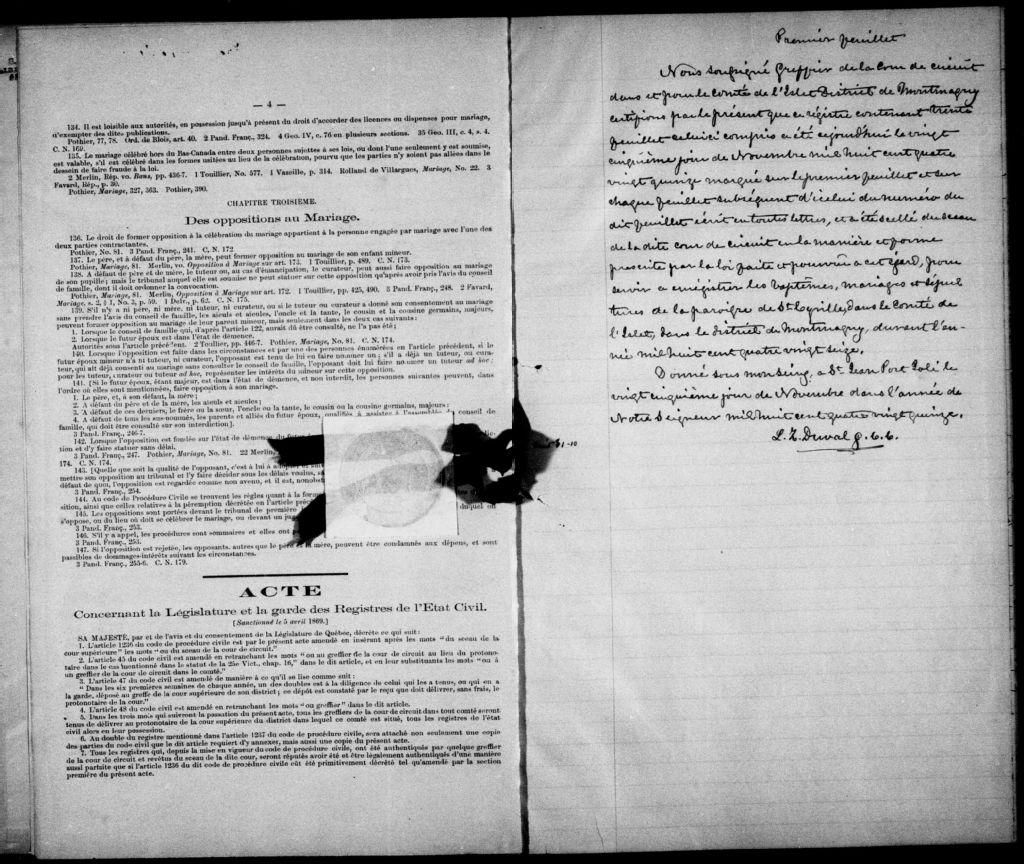 — 4 —
134. Il est loisible aux autorités, en possession jusqu'à présent du droit d'accorder des licences ou dispenses pour mariage,
d'exempter des dites publications.
Pothier, 77, 78. Ord. de Blois, art. 40. 2 Pand. Franç., 324. 4 Geo. IV, c. 76 en plusieurs sections. 35 Geo. III, c. 4, s. 4.
C. N. 169.
135. Le mariage célébré hors du Bas-Canada entre deux personnes sujettes à ses lois, ou dont l'une seulement y est soumise,
est valable, s'il est célébré dans les formes usitées au lieu de la célébration, pourvu que les parties n'y soient pas allées dans le
dessein de faire fraude à la loi.
2 Merlin, Rép. vo. Bans, pp. 436-7. 1 Touillier, No. 577. 1 Vazeille, p. 314. Rolland de Villargues, Mariage, No. 22. 3
Favard, Rép., p. 30.
Pothier, Mariage, 327, 363. Pothier, 390.
CHAPITRE TROISIÈME.
Des oppositions au Mariage.
136. Le droit de former opposition à la célébration du mariage appartient à la personne engagée par mariage avec l'une des
deux parties contractantes.
Pothier, No. 81. 3 Pand. Franç., 241. C. N. 172.
137. Le père, et à défaut du père, la mère, peut former opposition au mariage de son enfant mineur.
Pothier, Mariage, 81. Merlin, vo. Opposition à Mariage sur art. 173. 1 Touillier, p. 489. C. N. 173.
138. A défaut de père et de mère, le tuteur ou, au cas d'émancipation, le curateur, peut aussi faire opposition au mariage
de son pupille; mais le tribunal auquel elle est soumise ne peut statuer sur cette opposition qu'après avoir pris l'avis du conseil
de famille, dont il doit ordonner la convocation.
Pothier, Mariage, 81. Merlin, Opposition à Mariage sur art. 172. 1 Touillier, pp. 425, 490. 3 Pand. Franç., 248. 2 Favard,
Mariage, s. 2, § 1, No. 3, p. 59. 1 Delv., p. 62. C. N. 175.
139. S'il n'y a ni père, ni mère, ni tuteur, ni curateur, ou si le tuteur ou curateur a donné son consentement au mariage
sans prendre l'avis du conseil de famille, les aïeuls et aïeules, l'oncle et la tante, le cousin et la cousine germains, majeurs,
peuvent former opposition au mariage de leur parent mineur, mais seulement dans les deux cas suivants:
1. Lorsque le conseil de famille qui, d'après l'article 122, aurait dû être consulté, ne l'a pas été;
2. Lorsque le futur époux est dans l'état de démence.
Autorités sous l'article précédent. 2 Touillier, pp. 446-7. Pothier, Mariage, No. 81. C. N. 174.
140. Lorsque l'opposition est faite dans les circonstances et par une des personnes énumérées en l'article précédent, si le
futur époux mineur n'a ni tuteur, ni curateur, l'opposant est tenu de lui en faire nommer un; s'il a déjà un tuteur, ou cura-
teur, qui ait déjà consenti au mariage sans consulter le conseil de famille, l'opposant doit lui faire nommer un tuteur ad hoc;
pour les tuteur, curateur ou tuteur ad hoc, représenter les intérêts du mineur sur cette opposition.
141. [Si le futur époux, étant majeur, est dans l'état de démence, et non interdit, les personnes suivantes peuvent, dans
l'ordre où elles sont mentionnées, faire opposition à son mariage.
1. Le père, et, à son défaut, la mère;
2. A défaut du père et de la mère, les aïeuls et aïeules;
3. A défaut de ces derniers, le frère ou la sœur, l'oncle ou la tante, le cousin ou la cousine germains, majeurs;
4. A défaut de tous les sus-nommés, les parents et alliés du futur époux, qualifiés à assister à l'assemblée conseil de
famille, qui doit être consulté sur son interdiction].
3 Pand. Franç., 246-7.
142. Lorsque l'opposition est fondée sur l'état de démence du futur
tion et d'y faire statuer sans délai.
3 Pand. Franç., 247. Pothier, Mariage, No. 81. 22 Merlin,
174. C. N. 174.
143. [Quelle que soit la qualité de l'opposant, c'est à lui à adopter et
mettre son opposition au tribunal et l'y faire décider sous les délais voulus,
défaut de quoi, l'opposition est regardée comme non avenue, et il est, nonobs
3 Pand. Franç., 254.
144. Au code de Procédure Civile se trouvent les règles quant à la forme
sition, ainsi que celles relatives à la péremption décrétée en l'article préc
145. Les oppositions sont portées devant le tribunal de première duquel on
s'oppose, ou du lieu où doit se célébrer le mariage, ou devant un juge
3 Pand. Franç., 253.
146. S'il y a appel, les procédures sont sommaires et elles ont
3 Pand. Franç., 253.
147. Si l'opposition est rejetée, les opposants, autres que le père et la mère, peuvent être condamnés aux dépens, et sont
passibles de dommages-intérêts suivant les circonstances.
3 Pand. Franç., 255-6. C. N. 179.
ACTE
Concernant la Législature et la garde des Registres de l'Etat Civil.
[Sanctionné le 5 avril 1869.]
SA MAJESTÉ, par et de l'avis et du consentement de la Législature de Québec, décrète ce qui suit:
1. L'article 1236 du code de procédure civile est par le présent acte amendé en insérant après les mots "du sceau de la
cour supérieure" les mots "ou du sceau de la cour de circuit."
2. L'article 45 du code civil est amendé en retranchant les mots "ou au greffier de la cour de circuit au lieu du protono-
taire dans le cas mentionné dans le statut de la 25e Vict., chap. 16," dans le dit article, et en leur substituants les mots "ou à
un greffier de la cour de circuit dans le comté."
3. L'article 47 du code civil est amendé de manière à ce qu'il se lise comme suit:
"Dans les six premières semaines de chaque année, un des doubles est à la diligence de celui qui les a tenus, ou qui en a
la garde, déposé au greffe de la cour supérieure de son district; ce dépôt est constaté par le reçu que doit délivrer, sans frais, le
protonotaire de la cour."
4. L'article 48 du code civil est amendé en retranchant les mots "ou greffier" dans le dit article.
5. Dans les trois mois qui suivront la passation du présent acte, tous les greffiers de la cour de circuit dans tout comté seront
tenus de délivrer au protonotaire de la cour supérieure du district dans lequel ce comté est situé, tous les registres de l'état
civil alors en leur possession.
6. Au double du registre mentionné dans l'article 1237 du code de procédure civile, sera attaché non seulement une copie
des parties du code civil que le dit article requiert d'y annexer, mais aussi une copie du présent acte.
7. Tous les registres qui, depuis la mise en vigueur du code de procédure civile, ont été authentiqués par quelque greffier
de la cour de circuit et revêtus du sceau de la dite cour, seront réputés avoir été et être légalement authentiqués d'une manière
aussi parfaite que si l'article 1236 du dit code de procédure civile eût été primitivement décrété tel qu'amendé par la section
première du présent acte.
Premier feuillet
Nous soussigné Greffier de la Cour de circuit
dans et pour le Comté de l'Islet District de Montmagny
certifions par le présent que ce régistre contenant trente
feuillet celui ici compris a été ce jourd'hui le vingt
cinquième jour de Novembre mil huit cent quatre
vingt quinze marqué sur le premier feuillet et sur
chaque feuillet subséquent d'icelui du numéro du
dit feuillet écrit en toutes lettres, et a été scellé du sceau
de la dite cour de circuit en la manière et forme
prescrite par la loi faite et pourvue a cet egard, pour
servir a enrégistrer les baptêmes, mariages et sépul-
tures de la paroisse de St Cyrille, dans le Comté de
l'Islet, dans le district de Montmagny, durant l'an-
née mil huit cent quatre vingt seize.
Donné sous mon seing, a St. Jean Port Joli le
vingt cinquième jour de Novembre dans l'année de
Notre Seigneur mil huit cent quatre vingt quinze.
L. Z. Duval g. c. c.